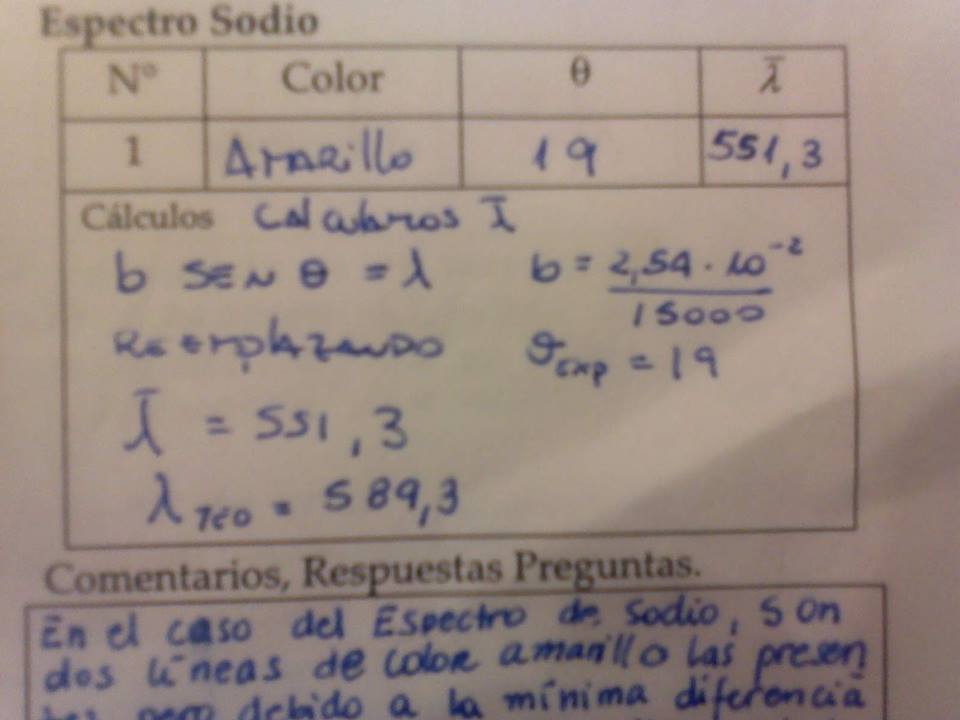 Espectro Sodio
N° Color θ λ̄
1 Amarillo 19 551,3
Cálculos Calculamos λ̄
b SEN θ = λ b = 2,54 · 10⁻² / 15000
Reemplazando θexp = 19
λ̄ = 551,3
λTEO = 589,3
Comentarios, Respuestas Preguntas.
En el caso del Espectro de Sodio, son
dos líneas de color amarillo las presen
tes pero debido a la mínima diferencia